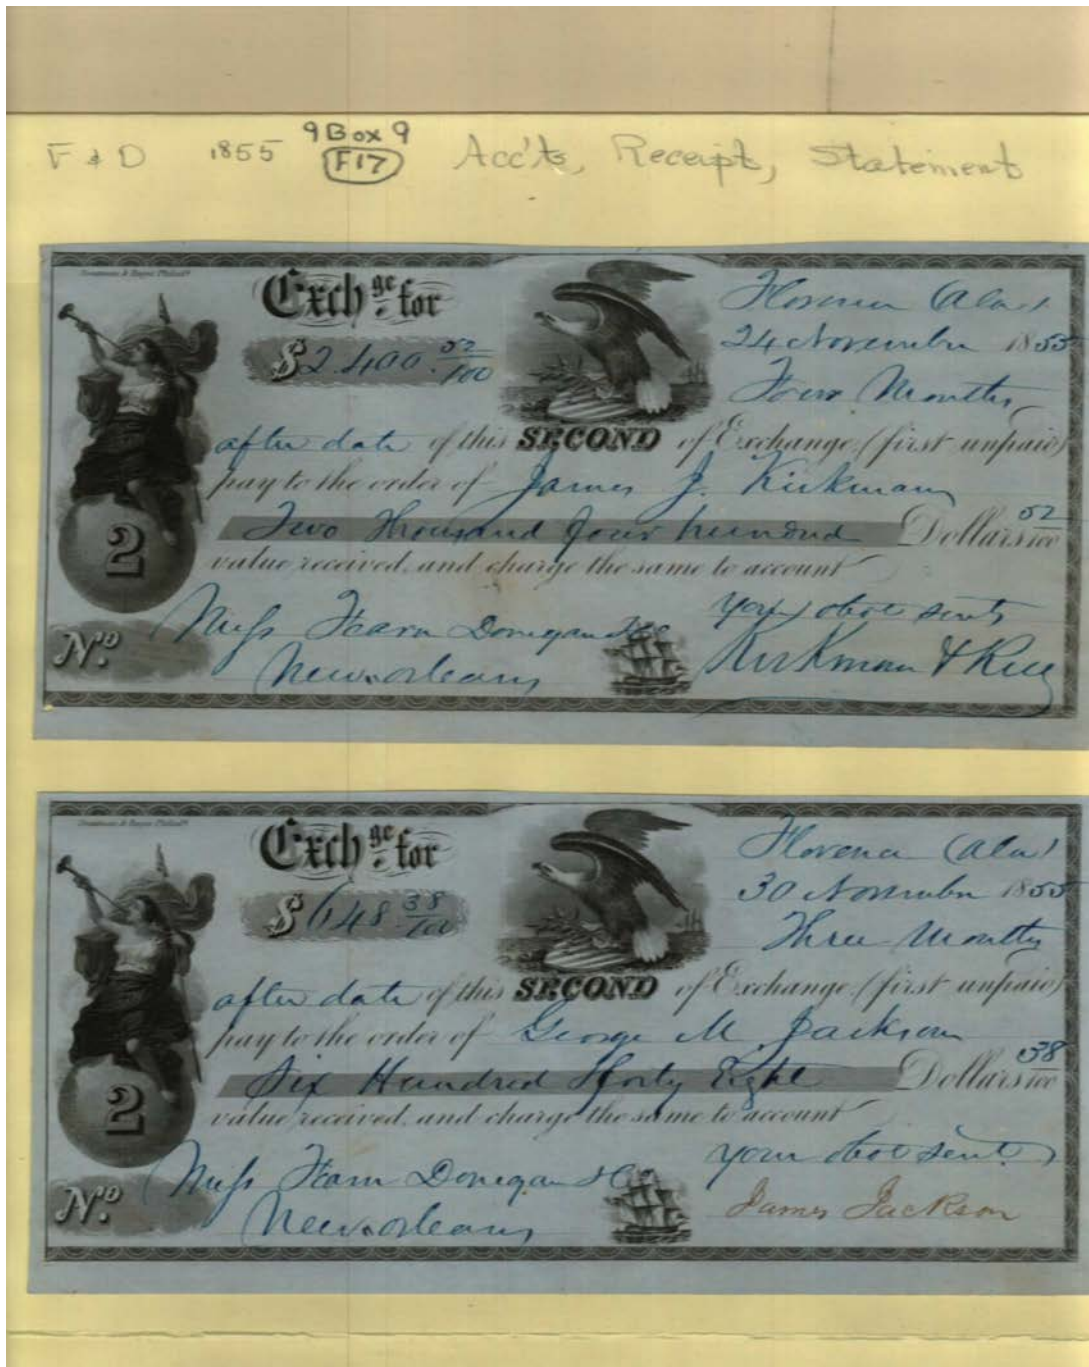 F & D 1855 9 Box 9 Acc'ts, Receipt, Statement
F17
Exchge for
$2.400.52/100
Florence (Ala)
24 November 1855
Four Months
after date of this SECOND of Exchange (first unpaid)
pay to the order of James J. Kirkman
Two Thousand four hundred Dollars 52/100
value received, and charge the same to account
Your obt servts
Messrs Fearn Donegan & Co
New Orleans
Kirkman & Rice
No.
2
Exchge for
$648 38/100
Florence (Ala)
30 November 1855
Three Months
after date of this SECOND of Exchange (first unpaid)
pay to the order of George M. Jackson
Six Hundred & forty Eight Dollars 38/100
value received, and charge the same to account
your obt servt
Messrs Fearn Donegan & Co
New Orleans
James Jackson
No.
2